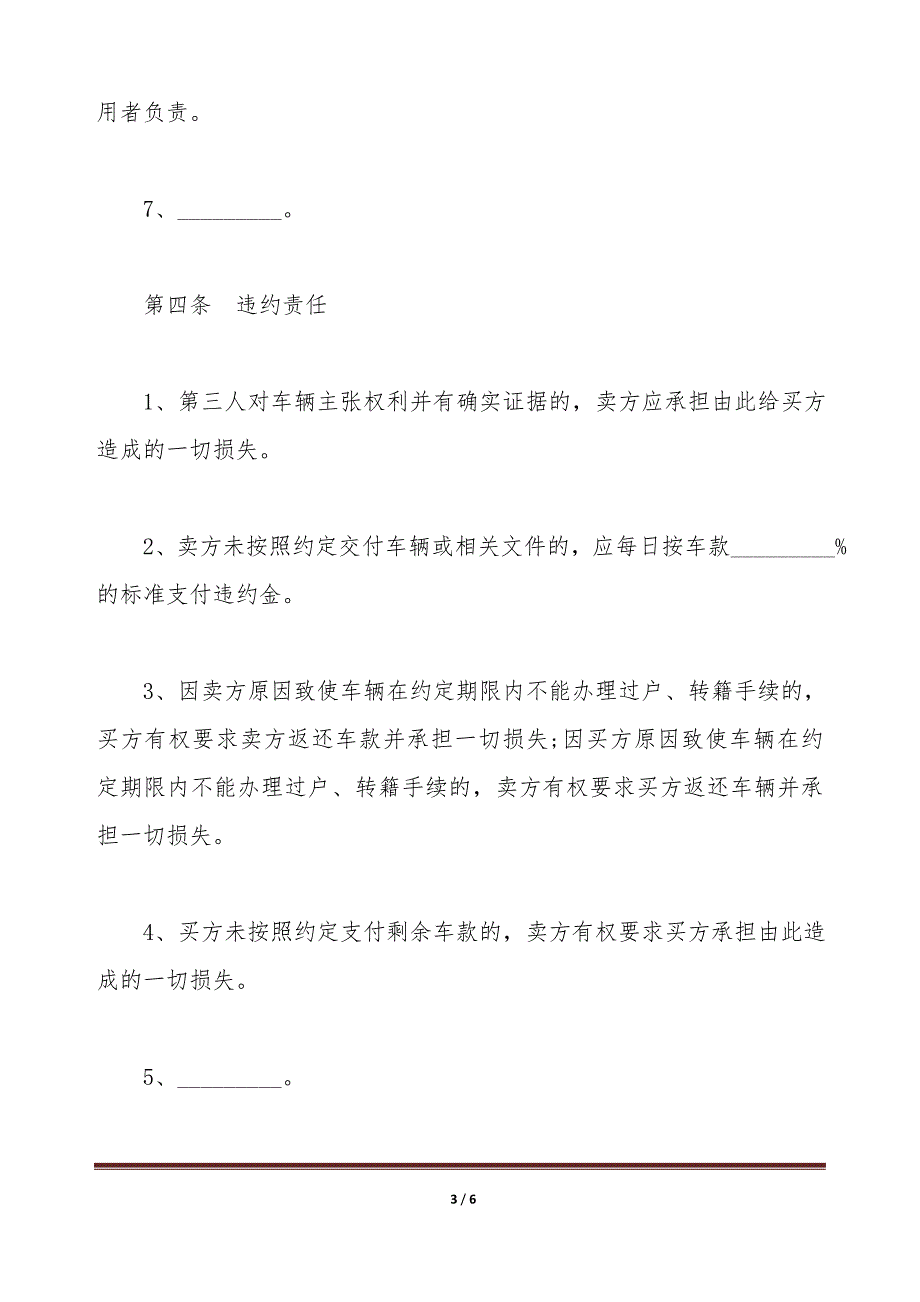 用者负责。
7、_________。
第四条　违约责任
1、第三人对车辆主张权利并有确实证据的，卖方应承担由此给买方
造成的一切损失。
2、卖方未按照约定交付车辆或相关文件的，应每日按车款_________%
的标准支付违约金。
3、因卖方原因致使车辆在约定期限内不能办理过户、转籍手续的，
买方有权要求卖方返还车款并承担一切损失;因买方原因致使车辆在约
定期限内不能办理过户、转籍手续的，卖方有权要求买方返还车辆并承
担一切损失。
4、买方未按照约定支付剩余车款的，卖方有权要求买方承担由此造
成的一切损失。
5、_________。
3 / 6